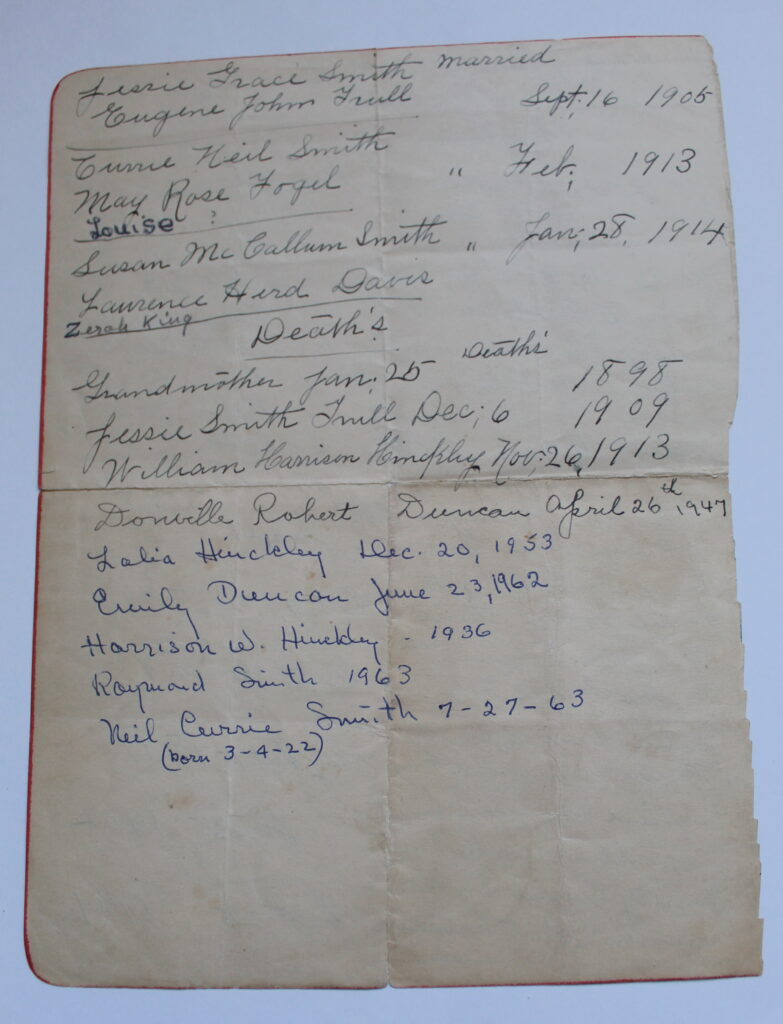 Jessie Grace Smith married
Eugene John Trull Sept. 16 1905
Currie Neil Smith
May Rose Fogel " Feb. 1913
Louise ?
Susan McCallum Smith " Jan. 28, 1914
Laurence Herd Davis
Zerah King
Death's
Deaths'
Grandmother Jan. 25 1898
Jessie Smith Trull Dec; 6 1909
William Harrison Hinckley Nov. 26, 1913
Donville Robert Duncan April 26th, 1947
Lalia Hinckley Dec. 20, 1953
Emily Duncan June 23, 1962
Harrison W. Hinckley - 1936
Raymond Smith 1963
Neil Currie Smith 7-27-63
(born 3-4-22)